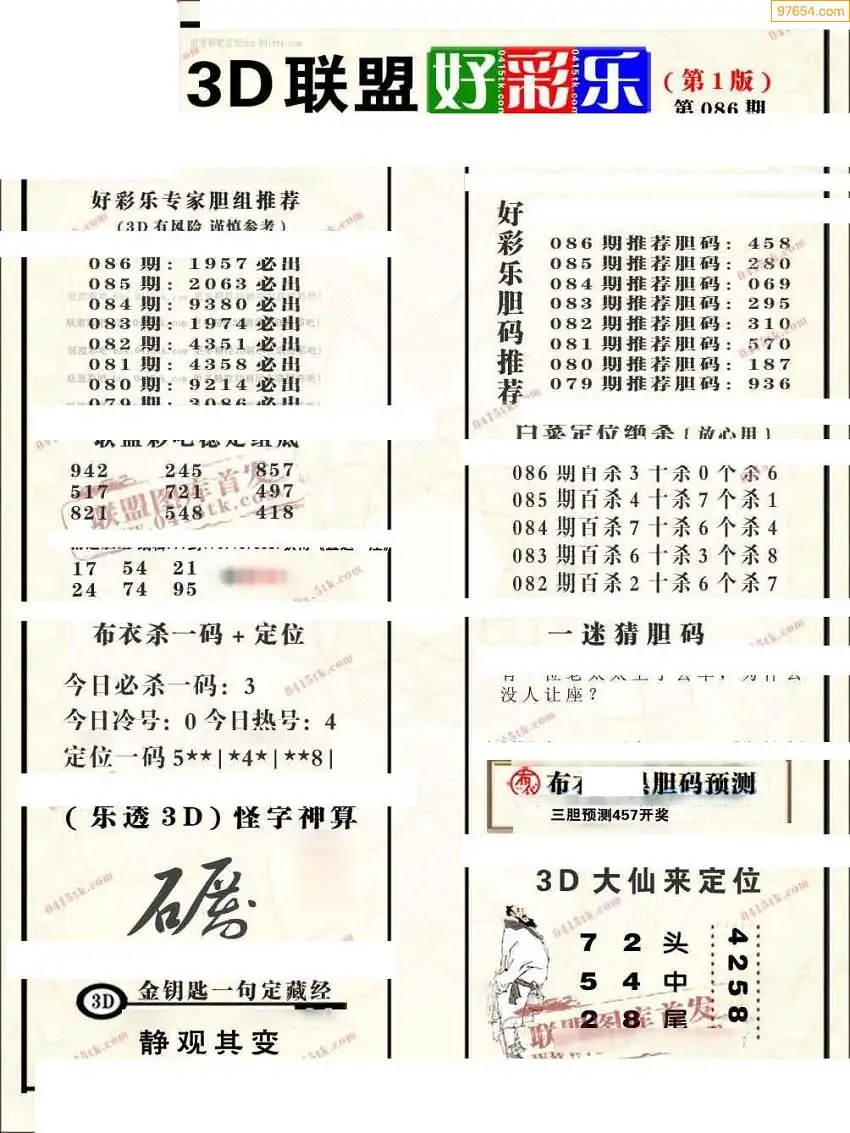 97654.com
3D联盟好彩乐
(第1版)
第086期
好彩乐专家胆组推荐
(3D有风险 谨慎参考)
086期: 1957必出
085期: 2063必出
084期: 9380必出
083期: 1974必出
082期: 4351必出
081期: 4358必出
080期: 9214必出
079期: 3086必出
942 245 857
517 721 497
821 548 418
17 54 21
24 74 95
布衣杀一码+定位
今日必杀一码: 3
今日冷号: 0 今日热号: 4
定位一码5**|*4*|**8|
(乐透3D)怪字神算
3D
金钥匙一句定藏经
静观其变
好彩乐胆码推荐
086期推荐胆码: 458
085期推荐胆码: 280
084期推荐胆码: 069
083期推荐胆码: 295
082期推荐胆码: 310
081期推荐胆码: 570
080期推荐胆码: 187
079期推荐胆码: 936
086期百杀3十杀0个杀6
085期百杀4十杀7个杀1
084期百杀7十杀6个杀4
083期百杀6十杀3个杀8
082期百杀2十杀6个杀7
一迷猜胆码
没人让座?
胆码预测
三胆预测457开奖
3D大仙来定位
7 2 头
5 4 中
2 8 尾
4258
联盟图库首发
www.0415tk.com